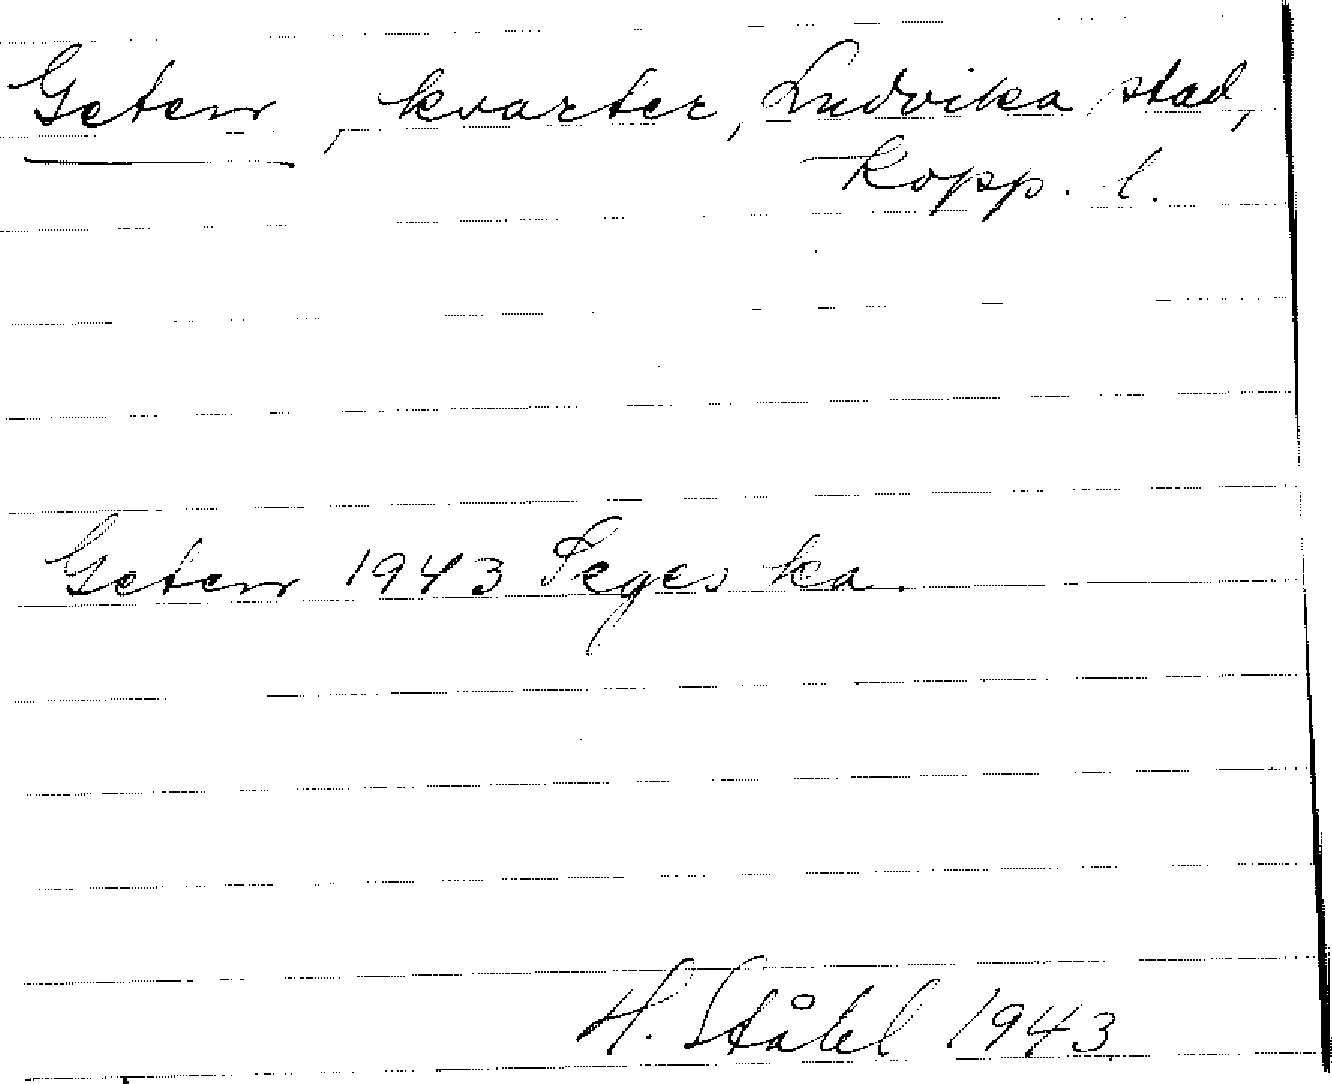 Geten, kvarter, Ludvika stad,
Kopp. l.
Geten 1943 Seges ka.
H. Ståhl 1943